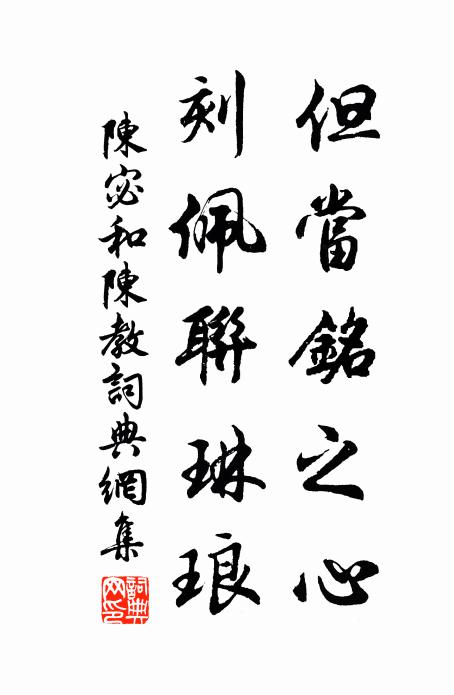 但當銘之心
刻佩聯琳琅
陳宓和陳教詞典網集
詞典網印